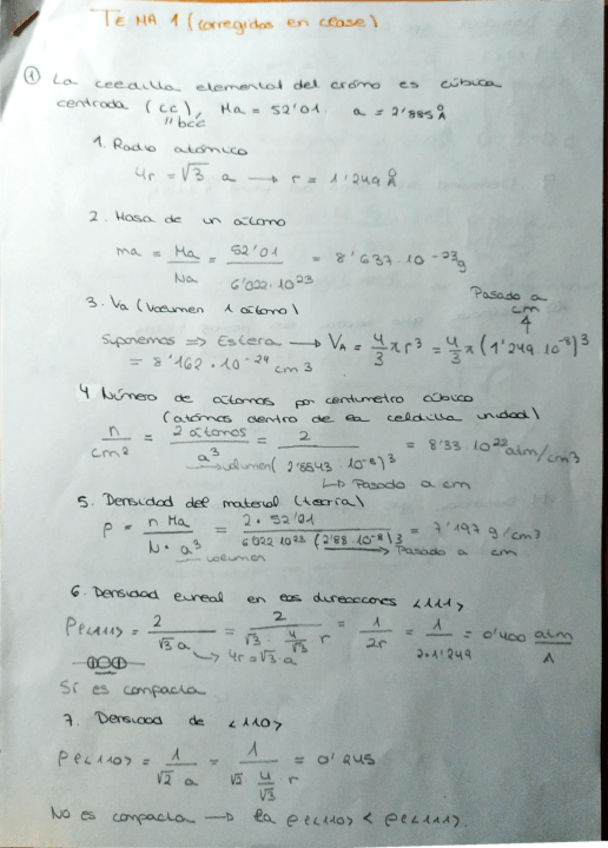 TEMA 1 (corregidos en clase)
① La celdilla elemental del cromo es cúbica
centrada (cc), Ma = 52'01. a = 2'885 Å
"bcc
1. Radio atómico
4r = √3 · a → r = 1'249 Å
2. Masa de un átomo
ma = Ma/Na = 52'01/6'022·10^23 = 8'637·10^-23 g
3. Va (Volumen 1 átomo)
Pasado a cm
Suponemos => Esfera → VA = 4/3 π r^3 = 4/3 π (1'249·10^-8)^3
= 8'162·10^-24 cm3
4 Número de átomos por centímetro cúbico
(átomos dentro de la celdilla unidad)
n/cm^2 = 2 átomos/a^3 = 2/(2'8843·10^-8)^3 = 8'33·10^22 atm/cm3
→ volumen ↳ Pasado a cm
5. Densidad del material (teoría)
ρ = n Ma/N·a^3 = 2·52'01/6'022·10^23 (2'88·10^-8)3 = 7'197 g/cm3
→ volumen → Pasado a cm
6. Densidad lineal en las direcciones <111>
ρe<111> = 2/√3 a = 2/√3 · 4/√3 · r = 1/2r = 1/2·1'249 = 0'400 atm/Å
→ 4r = √3·a
Sí es compacta
7. Densidad de <110>
ρe<110> = 1/√2 a = 1/√2 · 4/√3 · r = 0'245
No es compacta → la ρe<110> < ρe<111>.